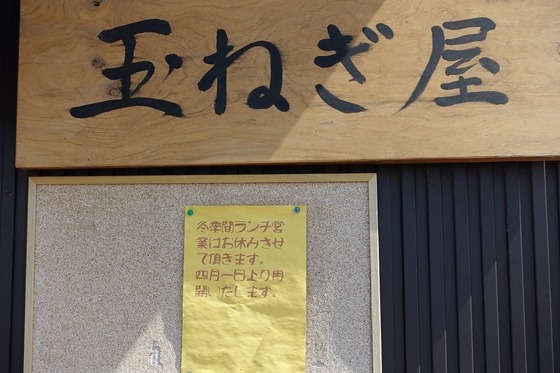 玉ねぎ屋
冬季間ランチ営
業はお休みさせ
て頂きます。
四月一日より再
開いたします。